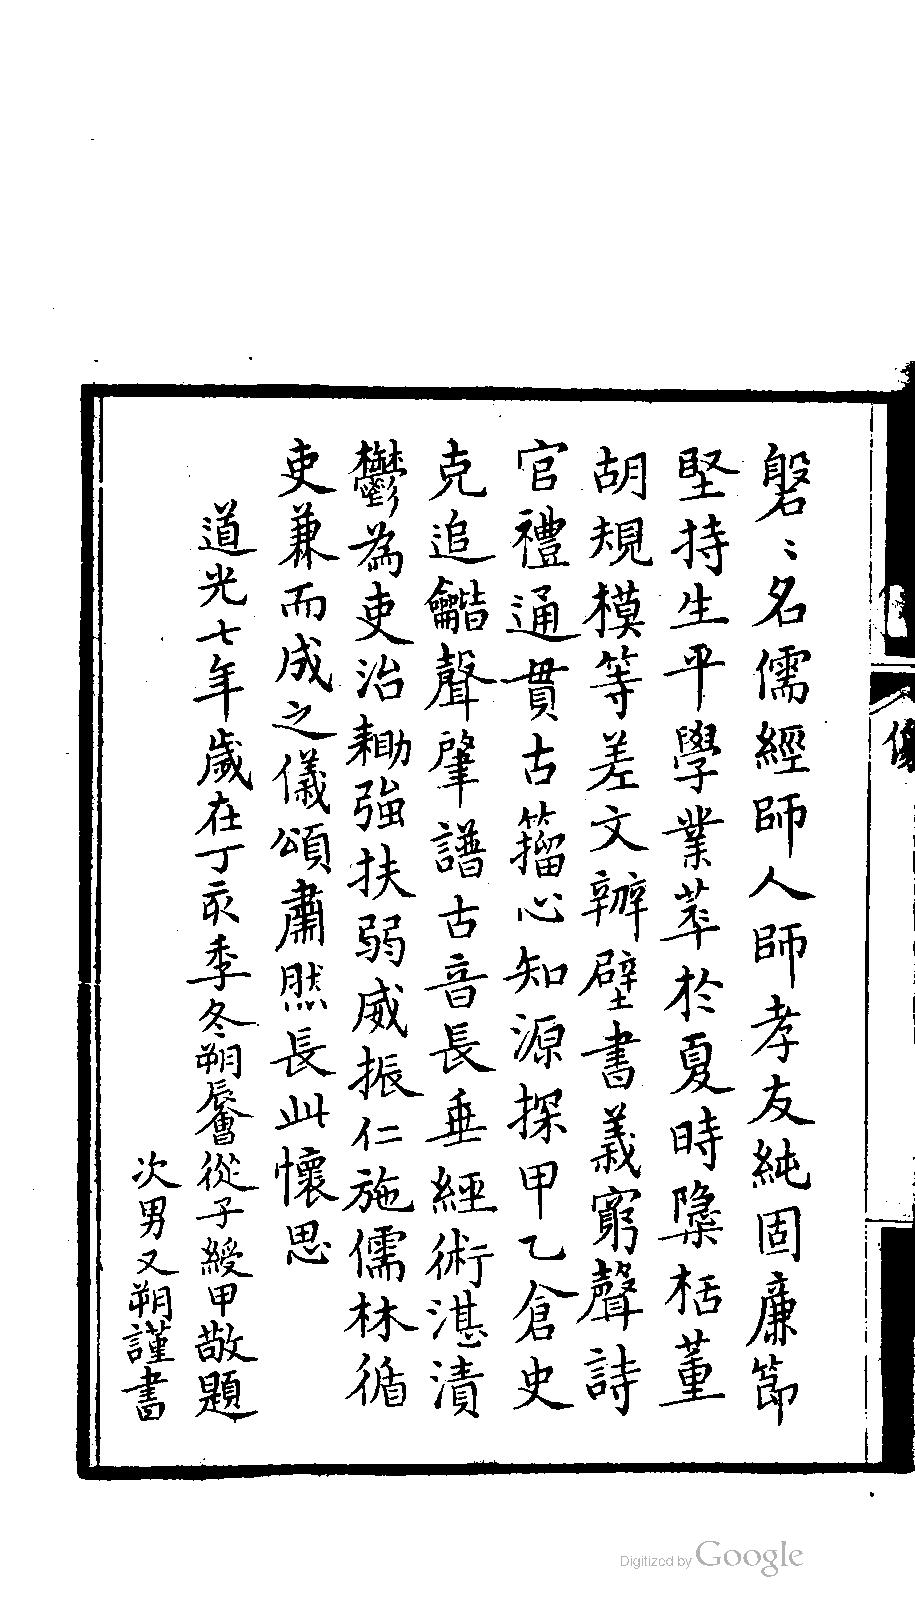 磐〻名儒經師人師孝友純固廉節
堅持生平學業萃於夏時檃栝董
胡規模等差文辨壁書義窮聲詩
官禮通貫古籀心知源探甲乙倉史
克追龤聲肇譜古音長垂經術湛漬
鬱為吏治耡強扶弱威振仁施儒林循
吏兼而成之儀頌肅然長此懷思
道光七年歲在丁亥季冬朔從子綬甲敬題
次男又朔謹書
Digitized by Google